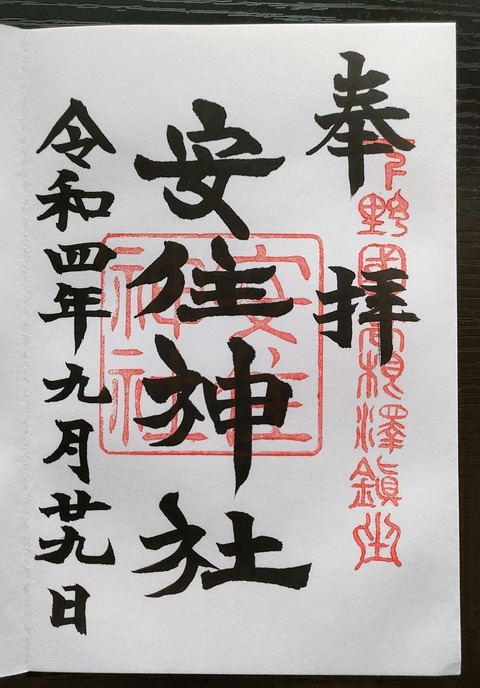 奉拝
下野國高根澤鎭坐
安住神社
安住
神社
令和四年九月廿九日